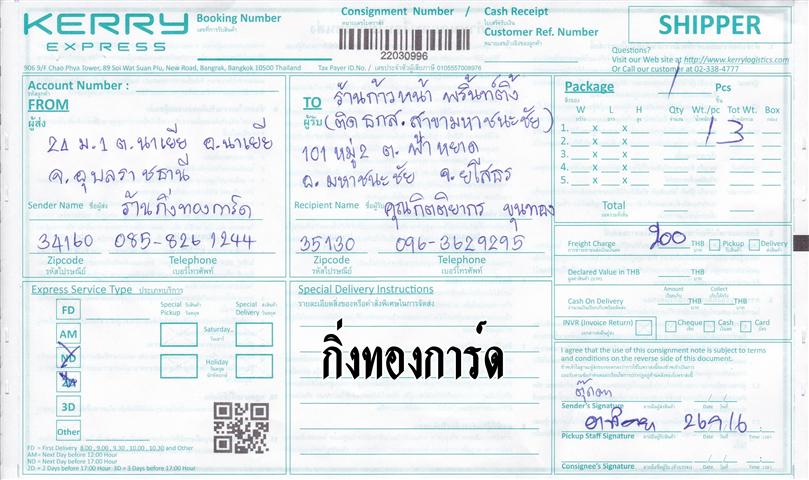 KERRY
EXPRESS
Booking Number
เลขที่การรับสินค้า
Consignment Number / Cash Receipt
หมายเลขใบตราส่ง / ใบเสร็จรับเงิน
22030996
Customer Ref. Number
หมายเลขอ้างอิงลูกค้า
SHIPPER
Questions?
Visit our Web site at http://www.kerrylogistics.com
Or Call our customer at 02-338-4777
906 9/F Chao Phya Tower, 89 Soi Wat Suan Plu, New Road, Bangrak, Bangkok 10500 Thailand
Tax Payer ID.No. / เลขประจำตัวผู้เสียภาษี 0105557008976
Account Number :
รหัสลูกค้า
FROM
ผู้ส่ง
24 ม.1 ต.นาเยีย อ.นาเยีย
จ.อุบลราชธานี
Sender Name ชื่อผู้ส่ง ร้านกิ่งทองการ์ด
34160 085-826 1244
Zipcode Telephone
รหัสไปรษณีย์ เบอร์โทรศัพท์
TO ร้านก้าวหน้า พริ้นท์ติ้ง
ผู้รับ (ติด ธกส. สาขามหาชนะชัย)
101 หมู่ 2 ต. ฟ้าหยาด
อ. มหาชนะชัย จ. ยโสธร
Recipient Name ชื่อผู้รับ คุณกิตติยากร ขุนทอง
35130 096-3629295
Zipcode Telephone
รหัสไปรษณีย์ เบอร์โทรศัพท์
Package 1 Pcs
สิ่งของ ชิ้น
W L H Qty Wt./pc Tot Wt. Box
1. x x 13
2. x x
3. x x
4. x x
5. x x
Total
Freight Charge 200 THB Pickup Delivery
Declared Value in THB THB
Amount Collect
Cash On Delivery THB THB
INVR (Invoice Return) Cheque Cash Card
I agree that the use of this consignment note is subject to terms
and conditions on the reverse side of document.
Sender's Signature ลายมือผู้ส่งสินค้า Date วันที่
26 9 16
Pickup Staff Signature Date วันที่ Time เวลา
Consignee's Signature Date วันที่ Time เวลา
Express Service Type ประเภทบริการ
Special Pickup วันรับสินค้า
Special Delivery วันส่งสินค้า
FD
AM
ND
2D
3D
Other
Saturday
วันเสาร์
Holiday
วันหยุด
นักขัตฤกษ์
FD = First Delivery 8.00 , 9.00 , 9.30 , 10.00 , 10.30 and Other
AM = Next Day before 12:00 Hour
ND = Next Day before 17:00 Hour
2D = 2 Days before 17:00 Hour 3D = 3 Days before 17:00 Hour
Special Delivery Instructions
รายละเอียดสิ่งของหรือคำสั่งพิเศษในการจัดส่ง
กิ่งทองการ์ด